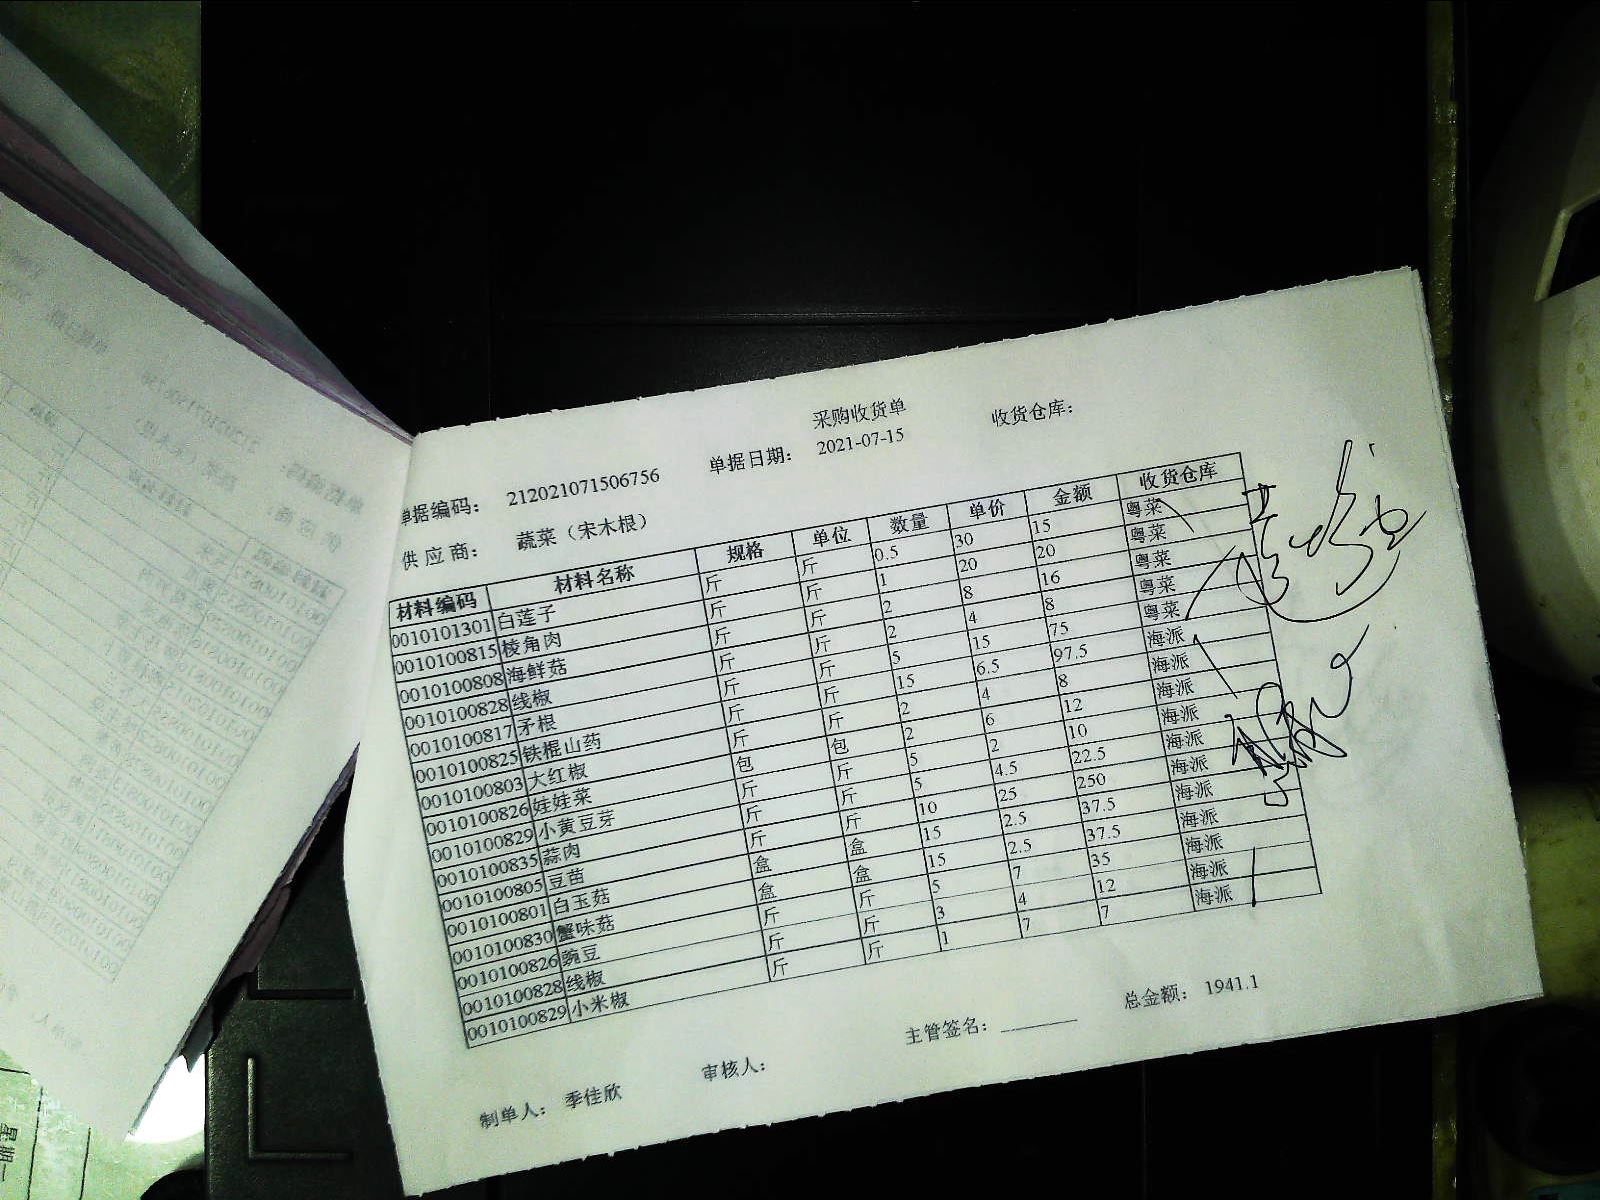 采购收货单
单据编码： 212021071506756 单据日期： 2021-07-15 收货仓库：
供应商： 蔬菜（宋木根）
材料编码 材料名称 规格 单位 数量 单价 金额 收货仓库
0010101301 白莲子 斤 斤 0.5 30 15 粤菜
0010100815 棱角肉 斤 斤 1 20 20 粤菜
0010100808 海鲜菇 斤 斤 2 8 16 粤菜
0010100828 线椒 斤 斤 2 4 8 粤菜
0010100817 矛根 斤 斤 5 15 75 海派
0010100825 铁棍山药 斤 斤 15 6.5 97.5 海派
0010100803 大红椒 斤 斤 2 4 8 海派
0010100826 娃娃菜 包 包 2 6 12 海派
0010100829 小黄豆芽 斤 斤 5 2 10 海派
0010100835 蒜肉 斤 斤 5 4.5 22.5 海派
0010100805 豆苗 斤 斤 10 25 250 海派
0010100801 白玉菇 盒 盒 15 2.5 37.5 海派
0010100830 蟹味菇 盒 盒 15 2.5 37.5 海派
0010100826 豌豆 斤 斤 5 7 35 海派
0010100828 线椒 斤 斤 3 4 12 海派
0010100829 小米椒 斤 斤 1 7 7 海派
总金额： 1941.1
制单人： 季佳欣 审核人： 主管签名：